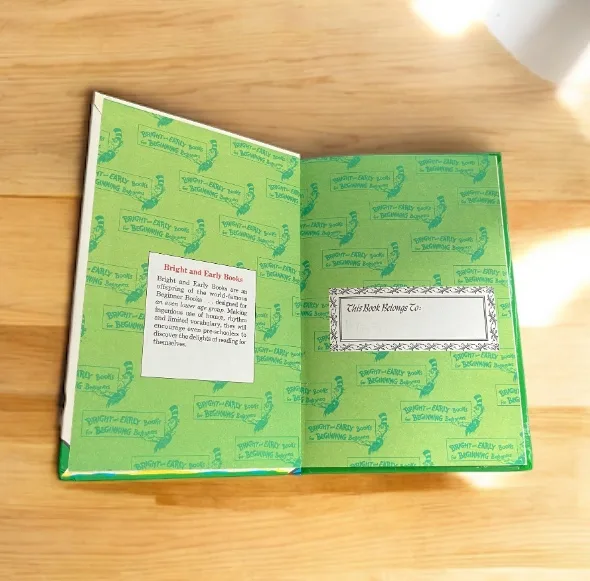 Bright and Early Books
Bright and Early Books are an
offspring of the world-famous
Beginner Books . . . designed for
an even lower age group. Making
ingenious use of humor, rhythm
and limited vocabulary, they will
encourage even pre-schoolers to
discover the delights of reading for
themselves.
This Book Belongs To:
BRIGHT and EARLY BOOKS
for BEGINNING Beginners